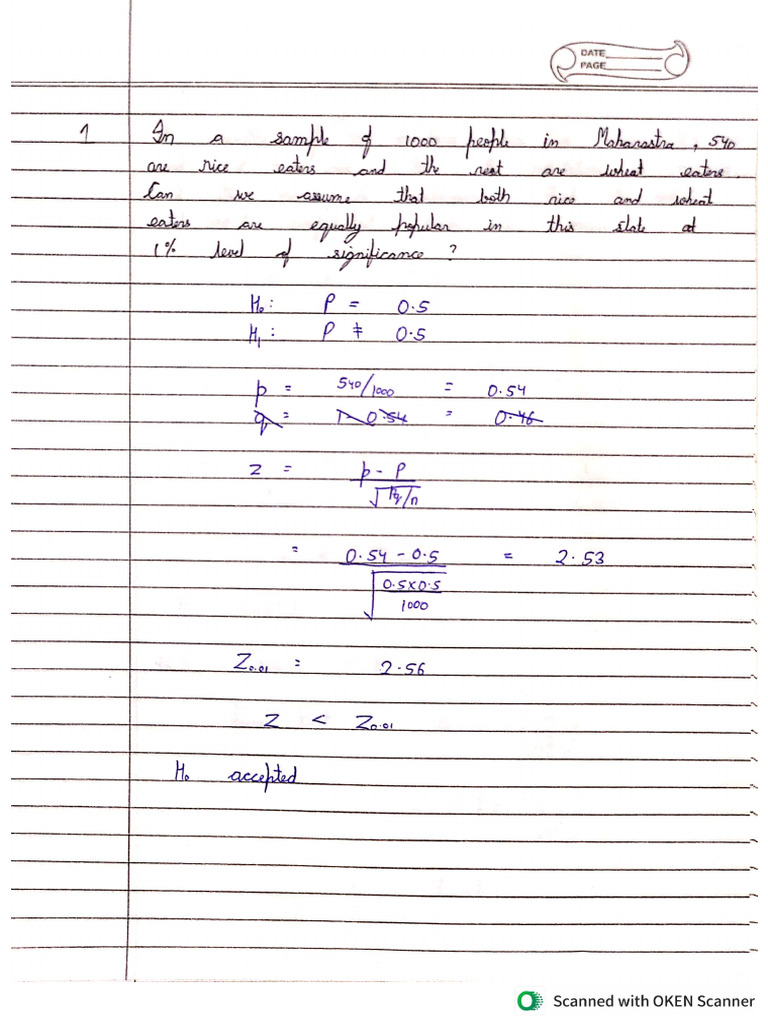 DATE
PAGE
1 In a sample of 1000 people in Maharastra, 540
are rice eaters and the rest are wheat eaters.
Can we assume that both rice and wheat
eaters are equally popular in this state at
1% level of significance?
H₀: P = 0.5
H₁: P ≠ 0.5
p = 540/1000 = 0.54
q = 1-0.54 = 0.46
z = p - P / √(Pq/n)
= 0.54 - 0.5 / √(0.5x0.5 / 1000) = 2.53
Z₀.₀₁ = 2.56
Z < Z₀.₀₁
H₀ accepted
Scanned with OKEN Scanner